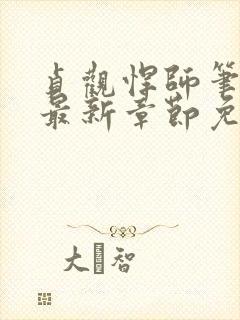 貞觀悍師筆
最新章節免
大 智